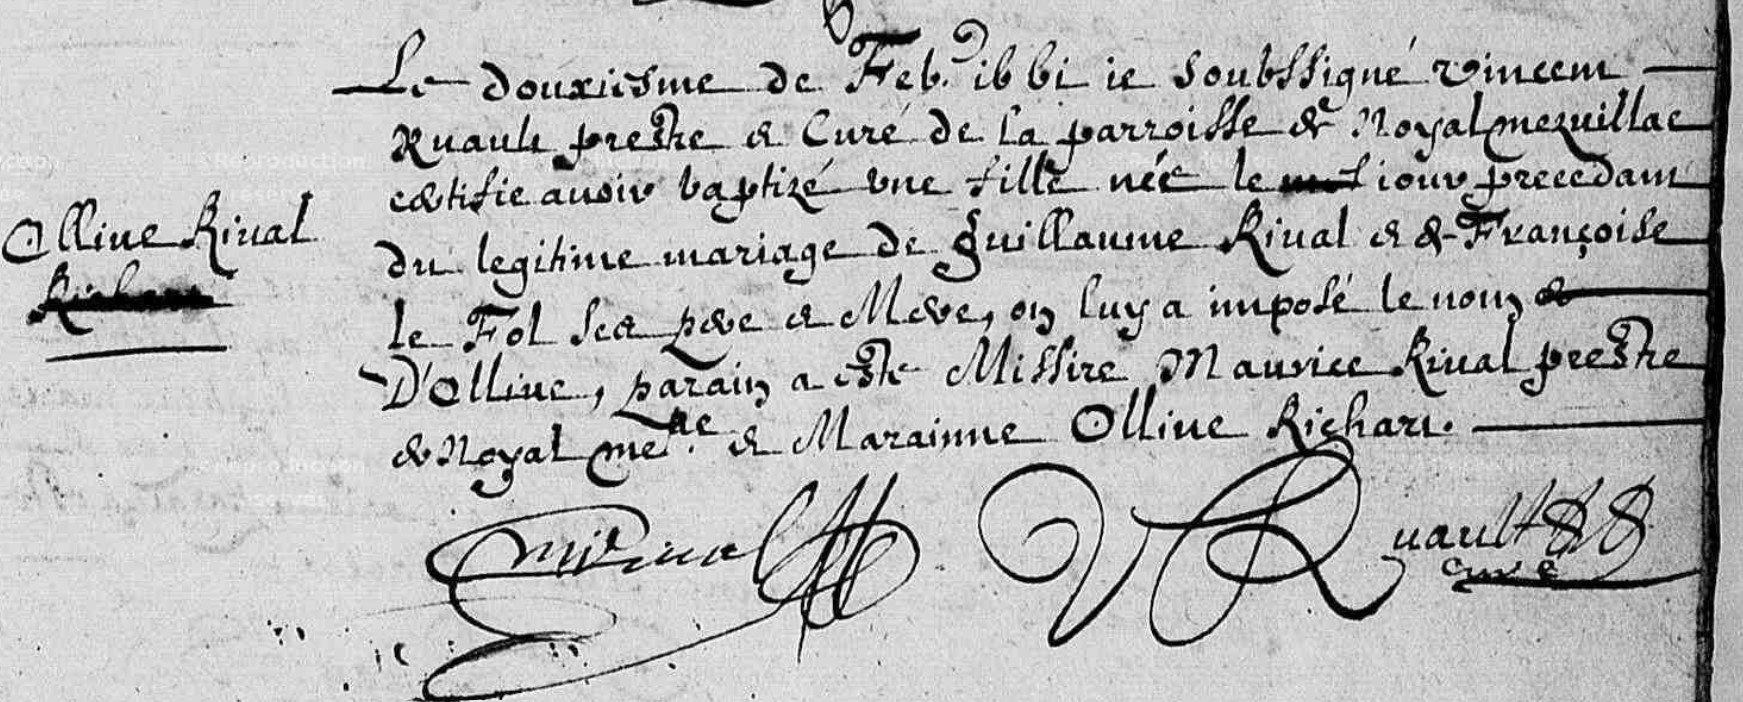 Le douxiesme de Feb. 1661 ie soubssigné vincent
Ruault prestre et Curé de la parroisse de Noyal mezuillac
certifie auoir baptizé vne fille née le iour precedant
du legitime mariage de Guillaume Riual et de Françoise
Olliue Riual
le Fol ses pere et Mere, on luy a imposé le nom de
D'Olliue, parain a esté Missire Maurice Riual prestre
de Noyal me.ac et Marainne Olliue Richart.
M Riual
V Ruault
curé